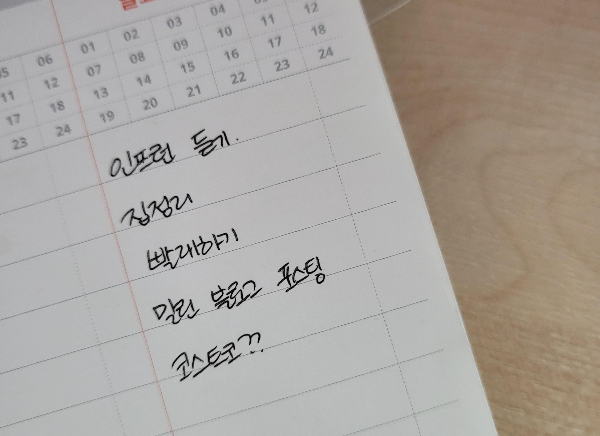 05 06 01 02 03 04
11 12 07 08 09 10 11 12
17 18 13 14 15 16 17 18
23 24 19 20 21 22 23 24
인프런 듣기.
집정리
빨래하기
밀린 블로그 포스팅
코스트코??